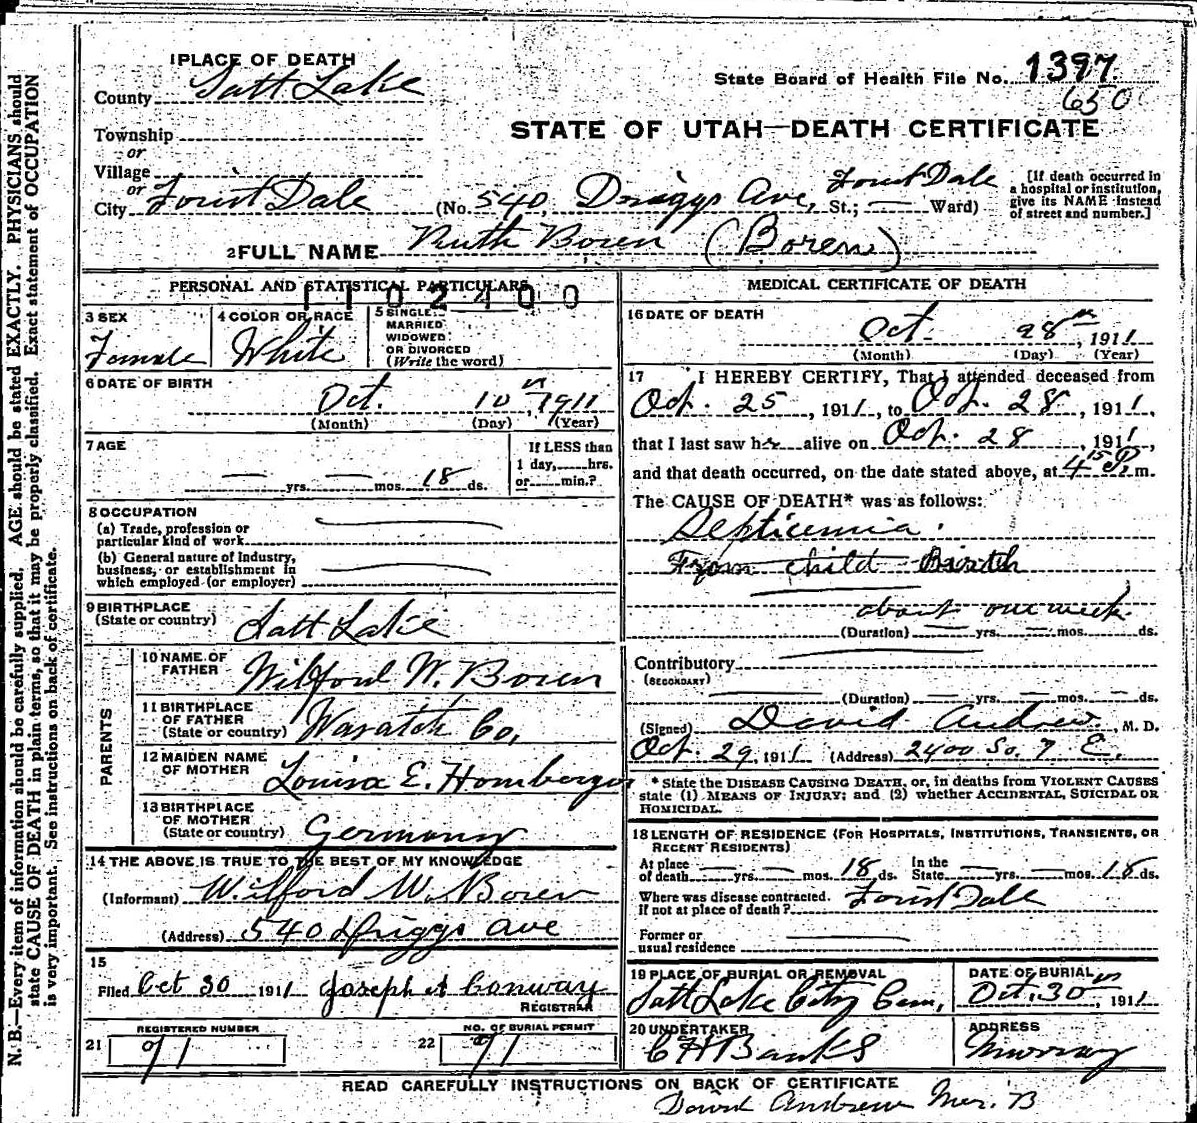 1 PLACE OF DEATH
County Salt Lake
Township
or
Village
or
City Forist Dale
State Board of Health File No. 1397
650
STATE OF UTAH—DEATH CERTIFICATE
(No. 540, Driggs Ave, Forist Dale St.; — Ward)
[If death occurred in a hospital or institution, give its NAME instead of street and number.]
2 FULL NAME Ruth Boren (Boren)
PERSONAL AND STATISTICAL PARTICULARS
1102400
3 SEX
Female
4 COLOR OR RACE
White
5 SINGLE,
MARRIED
WIDOWED
OR DIVORCED
(Write the word)
6 DATE OF BIRTH
Oct. 10th, 1911
(Month) (Day) (Year)
7 AGE
— — yrs. — — mos. 18 ds.
If LESS than
1 day, hrs.
or min.?
8 OCCUPATION
(a) Trade, profession or
particular kind of work
(b) General nature of Industry,
business, or establishment in
which employed (or employer)
9 BIRTHPLACE
(State or country) Salt Lake
PARENTS
10 NAME OF
FATHER Wilford W. Boren
11 BIRTHPLACE
OF FATHER
(State or country) Wasatch Co,
12 MAIDEN NAME
OF MOTHER Louisa E. Homberger
13 BIRTHPLACE
OF MOTHER
(State or country) Germany
14 THE ABOVE IS TRUE TO THE BEST OF MY KNOWLEDGE
(Informant) Wilford W. Boren
(Address) 540 Driggs Ave
15
Filed Oct 30 1911 Joseph A Conway
REGISTRAR
REGISTERED NUMBER
21 91
NO. OF BURIAL PERMIT
22 91
MEDICAL CERTIFICATE OF DEATH
16 DATE OF DEATH
Oct. 28th, 1911
(Month) (Day) (Year)
17 I HEREBY CERTIFY, That I attended deceased from
Oct. 25, 1911, to Oct. 28, 1911,
that I last saw her alive on Oct. 28, 1911,
and that death occurred, on the date stated above, at 4 15 P. m.
The CAUSE OF DEATH* was as follows:
Septicemia.
From child Birth
about one week.
(Duration) — yrs. — mos. ds.
Contributory
(SECONDARY)
(Duration) — yrs. — mos. — ds.
(Signed) David Andrew, M. D.
Oct. 29, 1911 (Address) 2400 So. 7 E.
* State the DISEASE CAUSING DEATH, or, in deaths from VIOLENT CAUSES
state (1) MEANS OF INJURY; and (2) whether ACCIDENTAL, SUICIDAL OR
HOMICIDAL.
18 LENGTH OF RESIDENCE (FOR HOSPITALS, INSTITUTIONS, TRANSIENTS, OR
RECENT RESIDENTS)
At place
of death — yrs. — mos. 18 ds. In the
State — yrs. — mos. 18 ds.
Where was disease contracted.
if not at place of death? Forist Dale
Former or
usual residence
19 PLACE OF BURIAL OR REMOVAL
Salt Lake City Cem,
DATE OF BURIAL
Oct. 30th, 1911
20 UNDERTAKER
C H Banks
ADDRESS
Murray
READ CAREFULLY INSTRUCTIONS ON BACK OF CERTIFICATE
David Andrew
N. B.—Every item of information should be carefully supplied. AGE should be stated EXACTLY. PHYSICIANS should
state CAUSE OF DEATH in plain terms, so that it may be properly classified. Exact statement of OCCUPATION
is very important. See instructions on back of certificate.